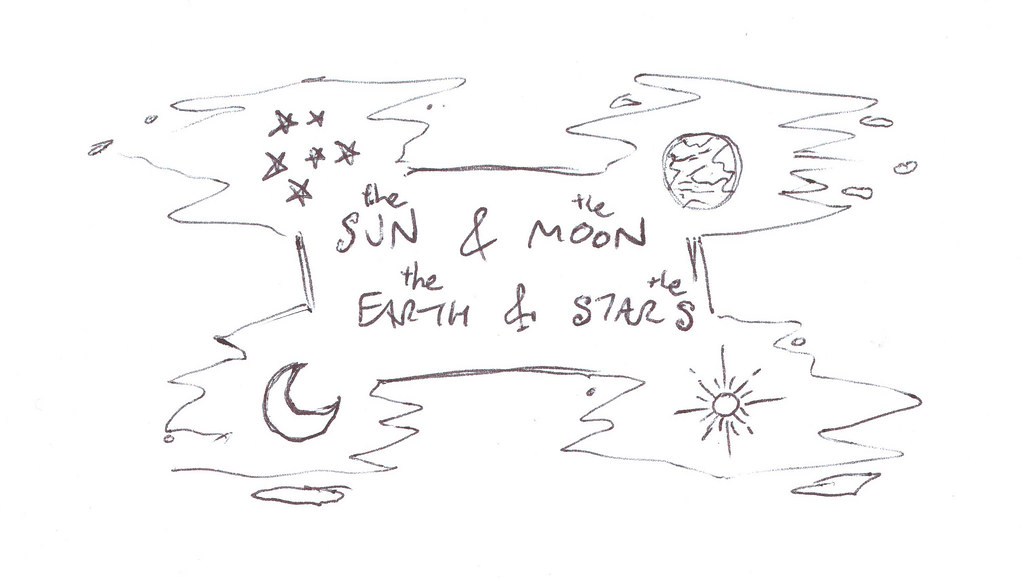 the SUN & the MOON
the EARTH & the STARS